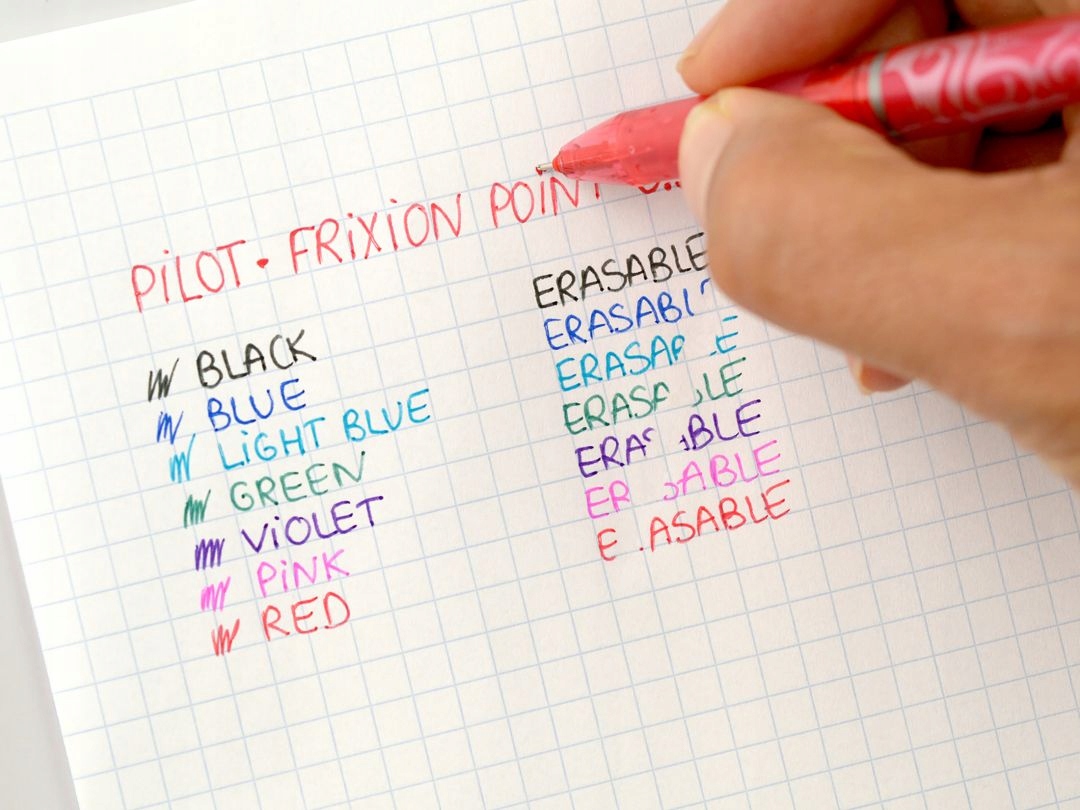 PiLOT · FRiXiON POINT
BLACK
BLUE
LiGHT BLUE
GREEN
ViOLET
PiNK
RED
ERASABLE
ERASABL
ERASAB E
ERASA LE
ERAS BLE
ER SABLE
E ASABLE